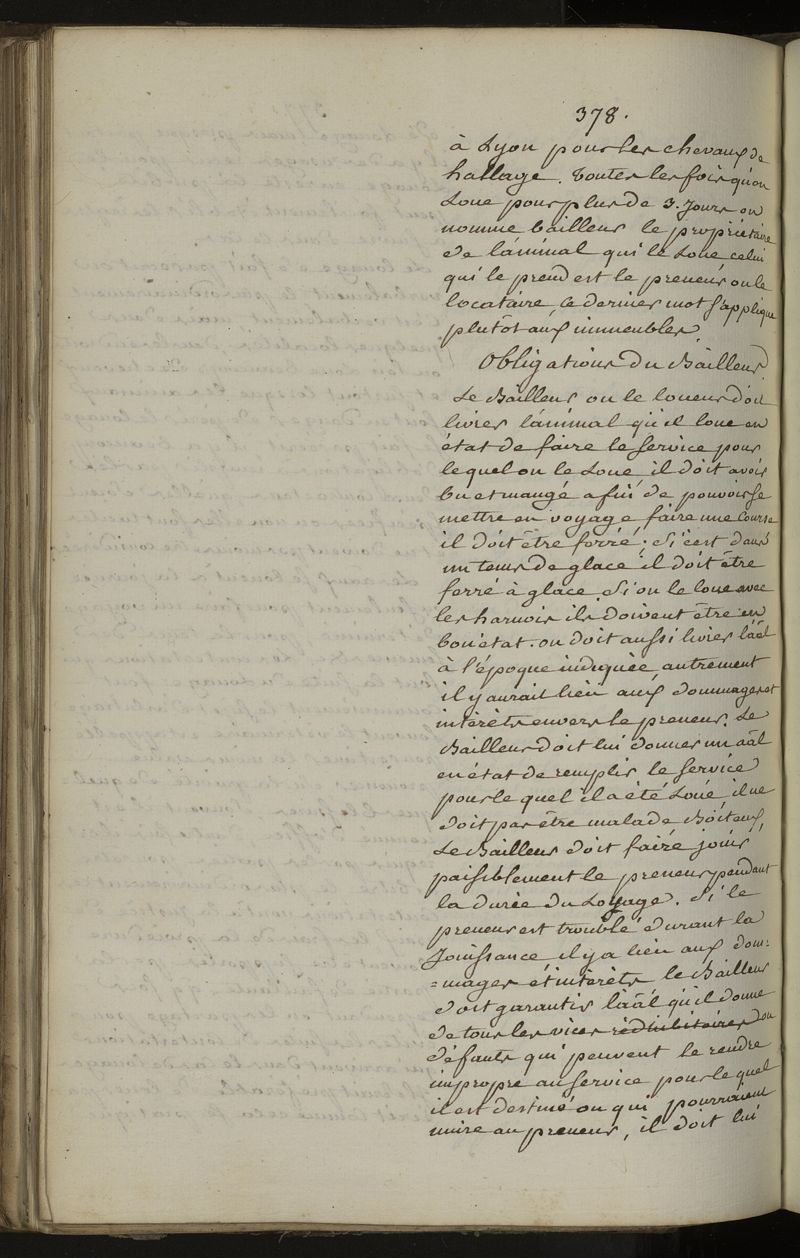 378.
à Lyon pour les chevaux de
hallage. Toutes les fois qu'on
Loue pour plus de 3. Jours on
nomme bailleur le propriétaire
de l'animal qui le Loue celui
qui le prend est le preneur ou le
locataire, ce dernier mot s'applique
plutôt aux immeubles.
Obligations du Bailleur
Le Bailleur ou le loueur doit
livrer l'animal qu'il loue en
état de faire le service pour
lequel on le Loue, il doit avoir
bu et mangé afin de pouvoir se
mettre en voyage faire une Course
il doit être ferré; Si c'est dans
un tems de glace il doit être
ferré à glace. Si on le loue avec
les harnois ils doivent être en
bon état. on doit aussi livrer l'aâl
à l'époque indiquée, autrement
il y aurait lieu aux dommages et
intérèts envers le preneur. Le
Bailleur doit lui donner un aâl
en état de remplir le service
pour le quel il a été Loué, il ne
doit pas être malade Boiteux,
Le Bailleur doit faire jouir
paisiblement le preneur pendant
la durée du Loyage. Si le
preneur est troublé durant la
Jouissance, il y a lieu aux dom=
=mages et intérèts le Bailleur
doit garantir l'aâl qu'il donne
de tous les vices rédhibitoires ou
défauts qui peuvent le rendre
impropre au service pour le quel
il est destiné ou qui pourraient
nuire au preneur, il doit lui